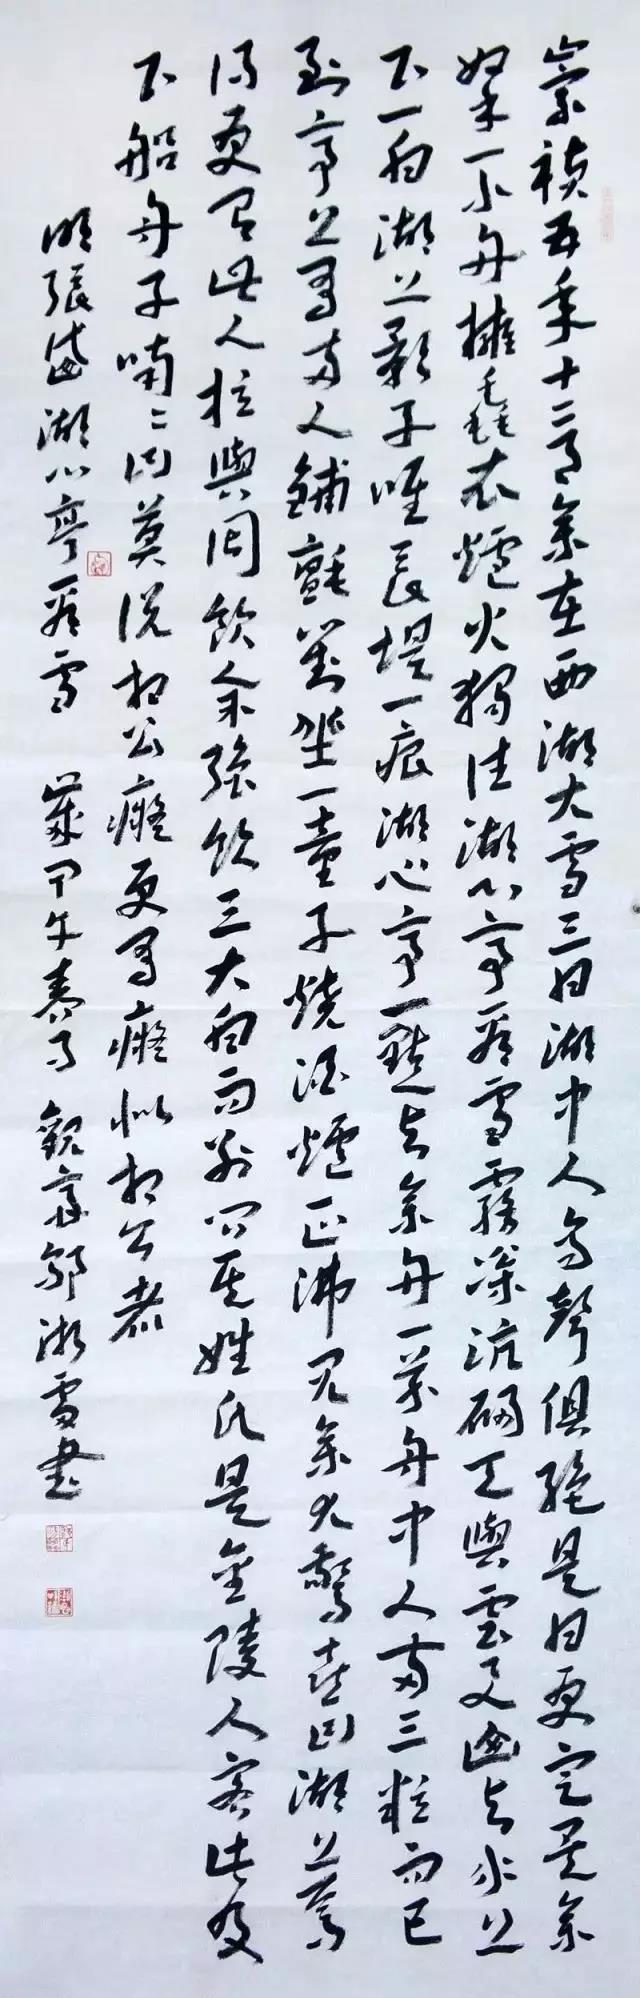 崇禎五年十二月余在西湖大雪三日湖中人鳥聲俱絕是日更定矣余
拏一小舟擁毳衣爐火獨往湖心亭看雪霧凇沆碭天與雲与山与水上
下一白湖上影子唯長堤一痕湖心亭一點与余舟一芥舟中人兩三粒而已
到亭上有兩人鋪氈對坐一童子燒酒爐正沸見余大驚喜曰湖上焉
得更有此人拉與同飲余強飲三大白而別問其姓氏是金陵人客此及
下船舟子喃〻曰莫說相公癡更有癡似相公者
明張岱湖心亭看雪 歲甲午春月 雪書